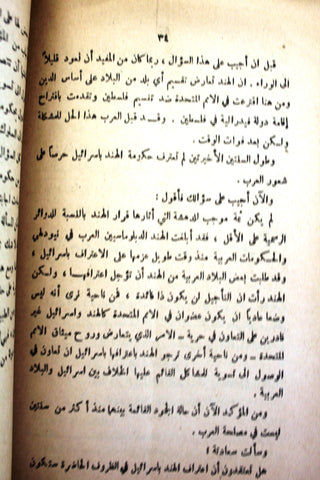 ٣٤
قبل ان أجيب على هذا السؤال ، ربما كان من المفيد أن نعود قليلاً
الى الوراء . ان الهند تعارض تقسيم أي بلد من البلاد على أساس الدين
ومن هنا اقترعت في الامم المتحدة ضد تقسيم فلسطين وتقدمت باقتراح
إقامة دولة فيدرالية في فلسطين . وقد قبل العرب هذا الحل للمشكلة
ولسكن بعد فوات الوقت .
وطول السنتين الأخيرتين لم تعترف حكومة الهند باسرائيل حرصاً على
شعور العرب .
والآن أجيب على سؤالك فأقول :
لم يكن ثمة موجب للدهشة التي أثارها قرار الهند بالنسبة للدوائر
الرسمية على الأقل ، فقد أبلغت الهند الدبلوماسيين العرب في نيودلهي
والحكومات العربية منذ وقت طويل عزمها على الاعتراف باسرائيل ،
وقد طلبت بعض البلاد العربية من الهند أن تؤجل اعترافها ، ولسكن
الهند رأت ان التأجيل لن يكون ذا فائدة ، فمن ناحية ترى أنه ليس
وضعا عادياً ان يكون عضوان في الامم المتحدة كالهند واسرائيل غير
قادرين على التعاون في حرية – الامر الذي يتعارض وروح ميثاق الامم
المتحدة – ومن ناحية أخرى ترجو الهند باعترافها باسرائيل ان تعاون في
الوصول الى تسوية للمشاكل القائم عليها الخلاف بين اسرائيل والبلاد
العربية .
ومن المؤكد الآن أن حالة الجمود القائمة بينهما منذ أكثر من سنتين
ليست في مصلحة العرب .
وسألت سعادته :
هل تعتقدون أن اعتراف الهند باسرائيل في الظروف الحاضرة سيكون